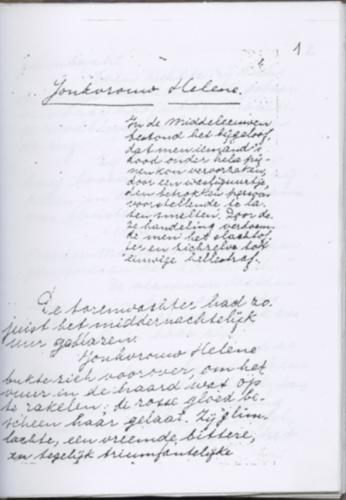 1
Jonkvrouw Helene.
In de Middeleeuwen
bestond het bijgeloof,
dat men iemand's
dood onder hels pij-
nen kon veroorzaken,
door een wasfiguurtje,
den betrokken persoon
voorstellende te la-
ten smelten. Door de-
ze handeling verdoem-
de men het slachtof-
fer en zichzelve tot
eeuwige hellestraf.
De torenwachter had zo-
juist het middernachtelijk
uur geblazen.
Jonkvrouw Helene
bukte zich voorover, om het
vuur in de haard wat op
te rakelen; de rosse gloed be-
scheen haar gelaat. Zij glim-
lachte, een vreemde, bittere,
en tegelijk triumfantelijke